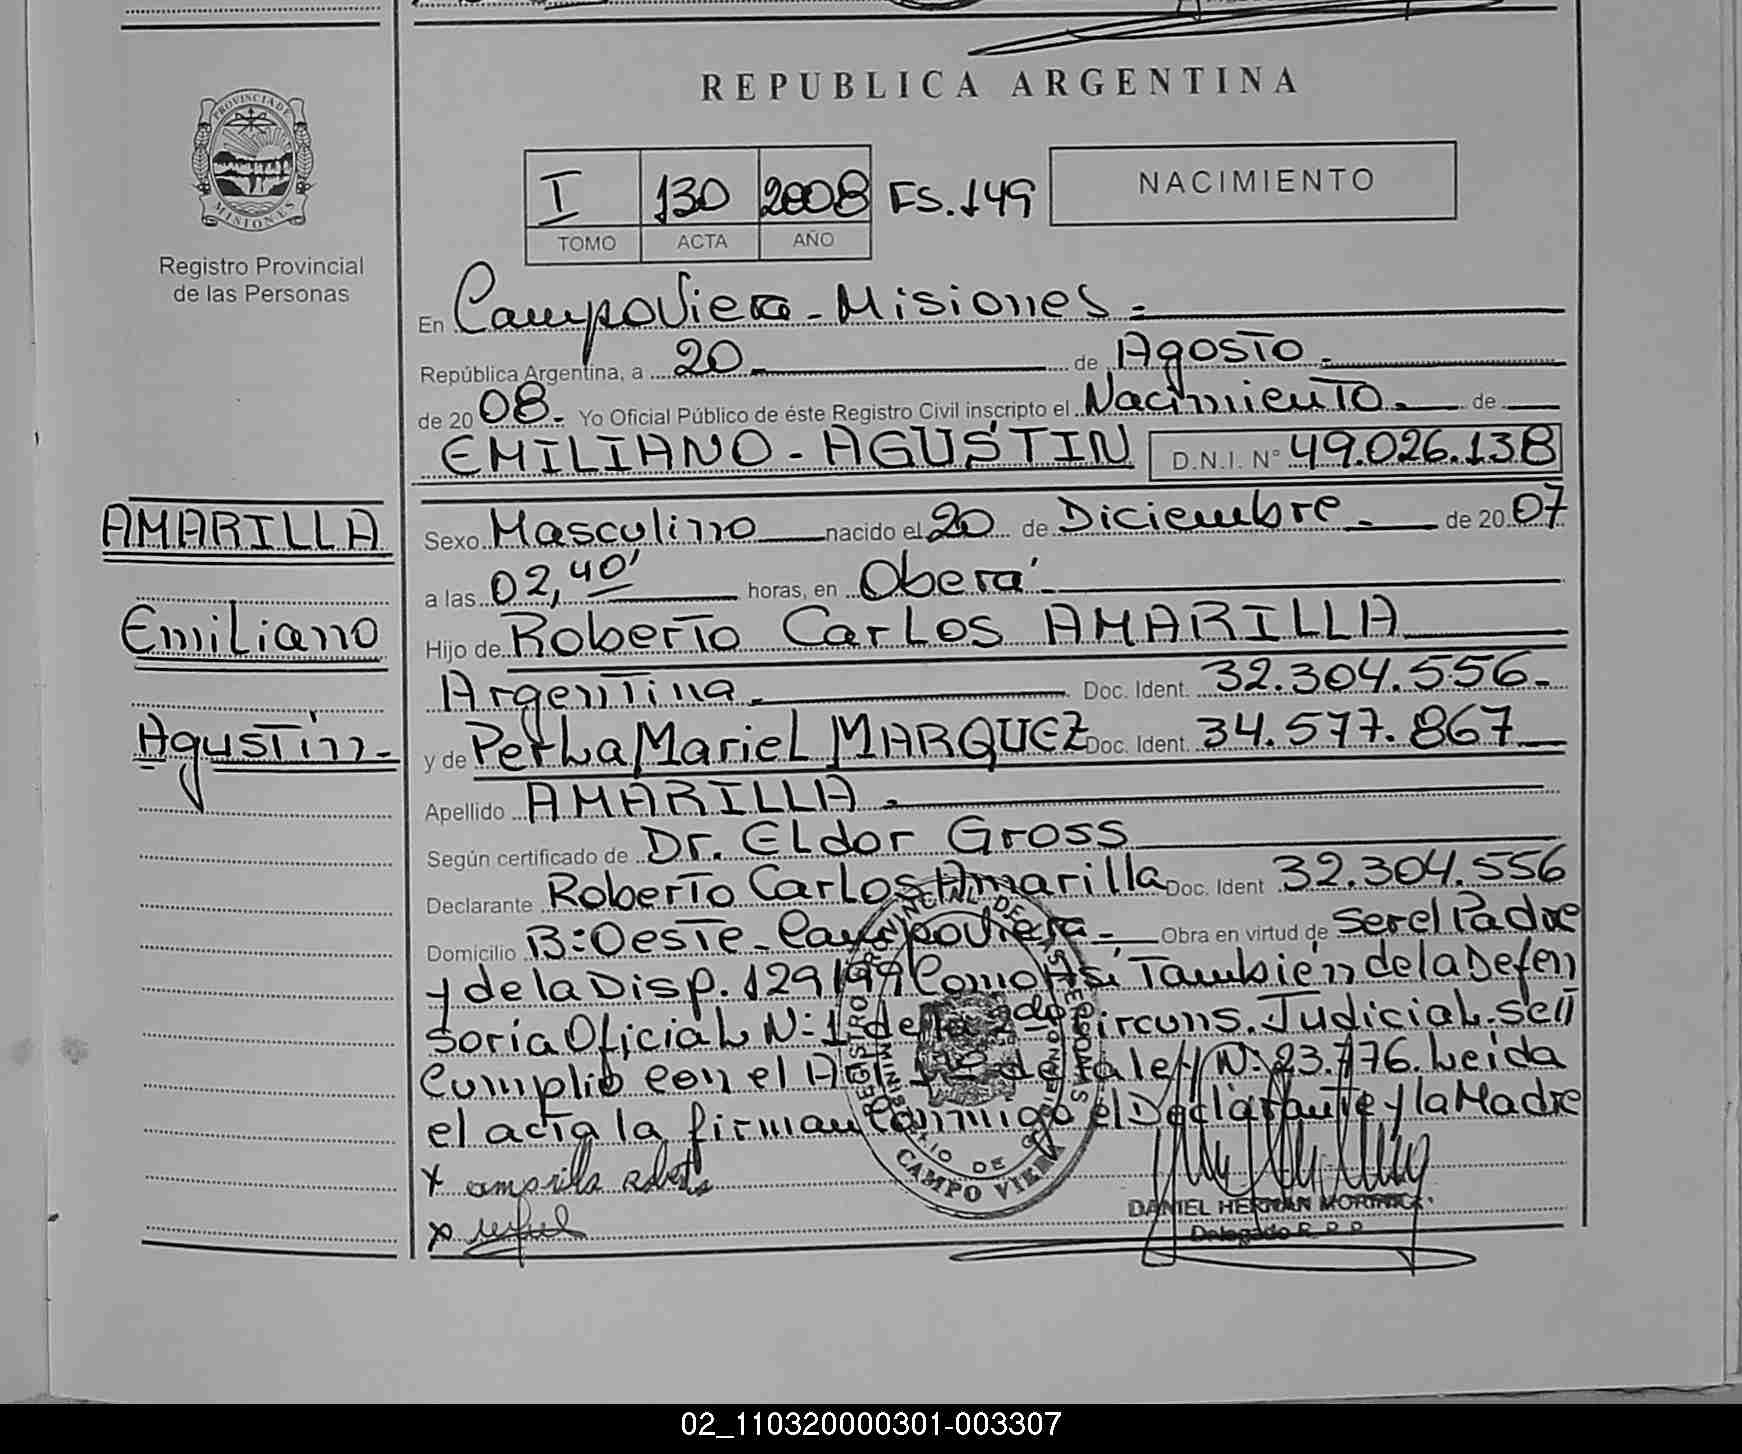 REPUBLICA ARGENTINA
PROVINCIA DE MISIONES
Registro Provincial
de las Personas
I 130 2008 FS.149
TOMO ACTA AÑO
NACIMIENTO
En Campo Viera - Misiones =
República Argentina, a 20 de Agosto -
de 20 08. Yo Oficial Público de éste Registro Civil inscripto el Nacimiento. de
EMILIANO - AGUSTIN D.N.I. N° 49.026.138
AMARILLA
Emiliano
Agustín-
Sexo Masculino nacido el 20 de Diciembre. de 20 07
a las 02,40' horas, en Oberá
Hijo de Roberto Carlos AMARILLA
Argentina. Doc. Ident. 32.304.556-
y de Perla Mariel MARQUEZ Doc. Ident. 34.577.867
Apellido AMARILLA.
Según certificado de Dr. Eldor Gross
Declarante Roberto Carlos Amarilla Doc. Ident 32.304.556
Domicilio B:Oeste-Campo Viera- Obra en virtud de ser el Padre
y de la Disp. 129/99 Como Así También de la Defen
soría Oficial N:1 de la 2da Circuns. Judicial. se
Cumplió con el Art de la ley N: 23.776. Leida
el acta la firman Conmigo el Declarante y la Madre
x amarilla Roberto
x
REGISTRO PROVINCIAL DE LAS PERSONAS
CAMPO VIERA
DANIEL HERNAN
Delegado R.P.P.
02_110320000301-003307